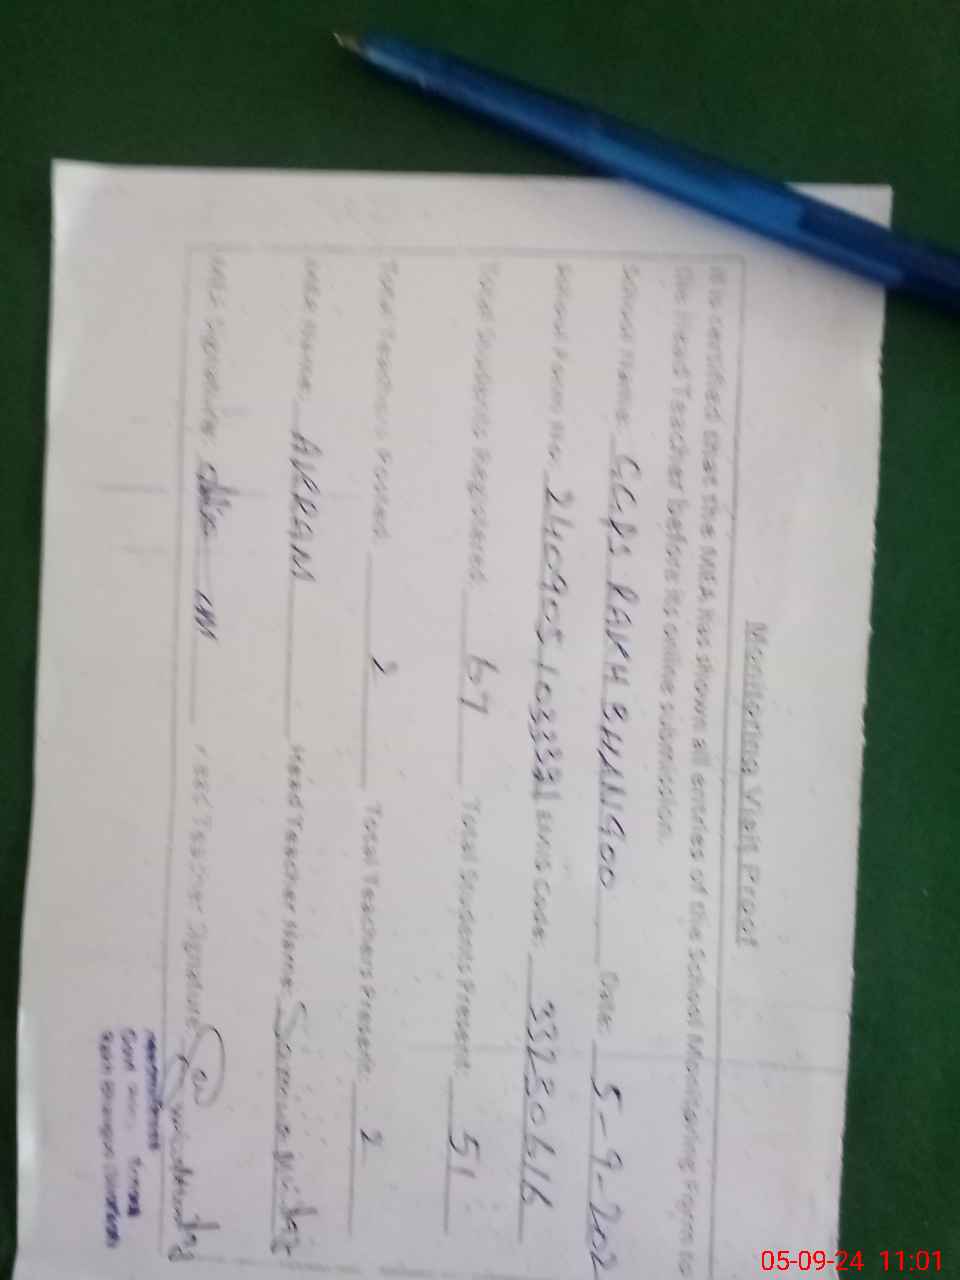 Monitoring Visit Proof
It is certified that the MEA has shown all entries of the School Monitoring Form to
the Head Teacher before its online submission.
School Name: GGPS RAKH BHANGOO Date: 5-9-202
School Form No: 240905103339 EMIS Code: 33230616
Total Students Registered: 67 Total Students Present: 51
Total Teachers Posted: 2 Total Teachers Present: 2
MEA Name: AKRAM Head Teacher Name:
MEA Signature: Head Teacher Signature:
Headmistress
Govt
Rakh Bhangoo
05-09-24 11:01